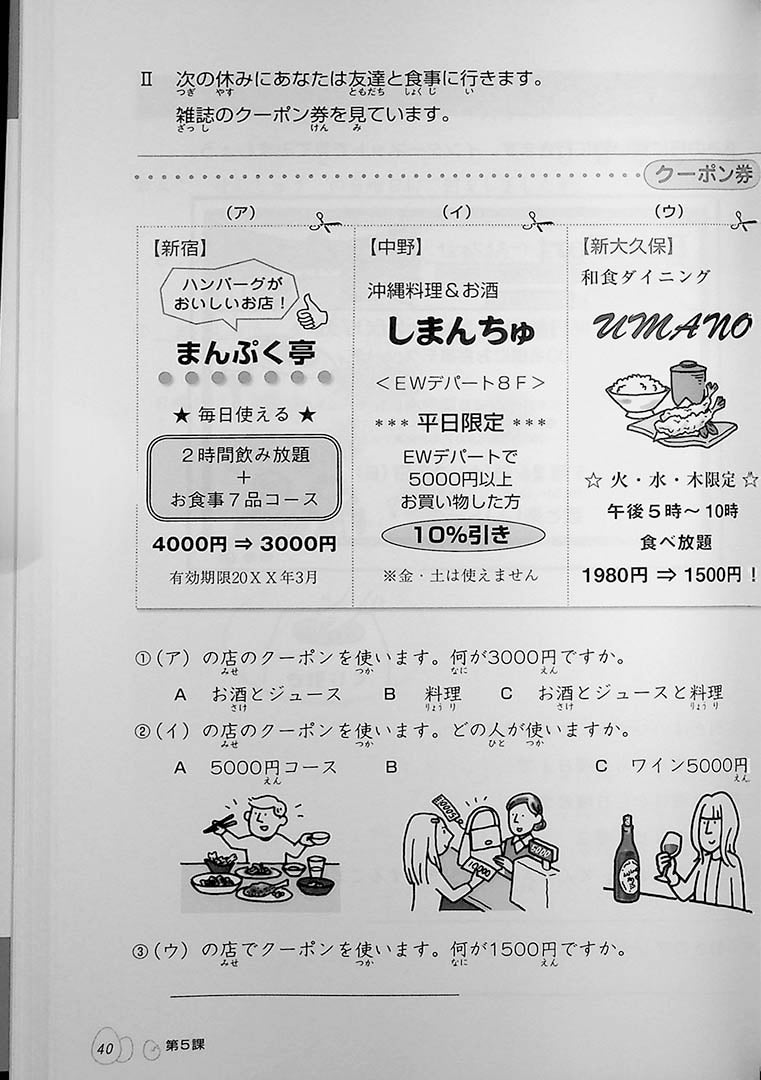 Ⅱ 次の休みにあなたは友達と食事に行きます。
つぎ やす ともだち しょくじ い
雑誌のクーポン券を見ています。
ざっし けん み
クーポン券
（ア）
【新宿】
ハンバーグが
おいしいお店！
まんぷく亭
★ 毎日使える ★
2時間飲み放題
＋
お食事7品コース
4000円 ⇒ 3000円
有効期限20ＸＸ年3月
（イ）
【中野】
沖縄料理＆お酒
しまんちゅ
＜ＥＷデパート８Ｆ＞
*** 平日限定 ***
EWデパートで
5000円以上
お買い物した方
10%引き
※金・土は使えません
（ウ）
【新大久保】
和食ダイニング
UMANO
☆ 火・水・木限定 ☆
午後５時～10時
食べ放題
1980円 ⇒ 1500円！
①（ア）の店のクーポンを使います。何が3000円ですか。
みせ つか なに えん
A お酒とジュース B 料理 C お酒とジュースと料理
さけ りょうり さけ りょうり
②（イ）の店のクーポンを使います。どの人が使いますか。
みせ つか ひと つか
A 5000円コース B C ワイン5000円
えん えん
5000
10000
5000
③（ウ）の店でクーポンを使います。何が1500円ですか。
みせ つか なに えん
40 第5課